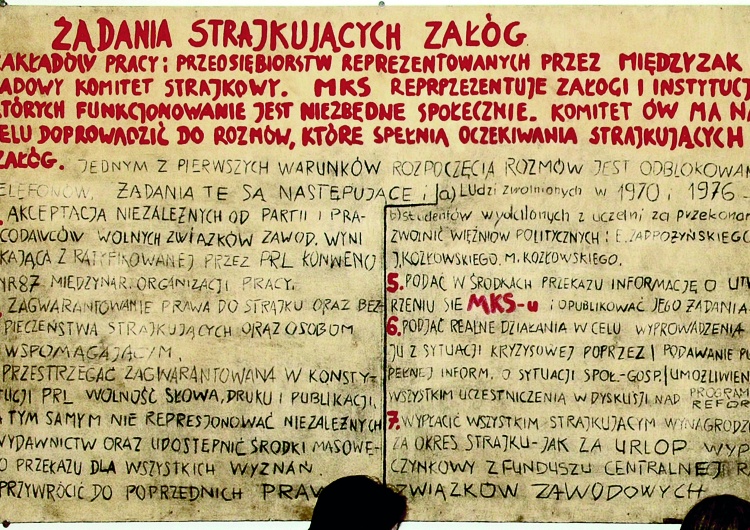 ŻĄDANIA STRAJKUJĄCYCH ZAŁÓG
ZAKŁADÓW PRACY I PRZEDSIĘBIORSTW REPREZENTOWANYCH PRZEZ MIĘDZYZAK
ADOWY KOMITET STRAJKOWY. MKS REPRPZENTUJE ZAŁOGI I INSTYTUCJ
TÓRYCH FUNKCJONOWANIE JEST NIEZBĘDNE SPOŁECZNIE. KOMITET ÓW MA NA
ELU DOPROWADZIĆ DO ROZMÓW, KTÓRE SPEŁNIA OCZEKIWANIA STRAJKUJĄCYCH
ZAŁÓG. JEDNYM Z PIERWSZYCH WARUNKÓW ROZPOCZĘCIA ROZMÓW JEST ODBLOKOWAN
ELEFONÓW. ŻADANIA TE SĄ NASTĘPUJĄCE :
. AKCEPTACJA NIEZALEŻNYCH OD PARTII I PRA-
CODAWCÓW WOLNYCH ZWIĄZKÓW ZAWOD. WYNI
KAJĄCA Z RATYFIKOWANEJ PRZEZ PRL KONWENCJ
NR87 MIĘDZYNAR. ORGANIZACJI PRACY.
. ZAGWARANTOWANIE PRAWA DO STRAJKU ORAZ BEZ-
PIECZEŃSTWA STRAJKUJĄCYCH ORAZ OSOBOM
WSPOMAGAJĄCYM.
PRZESTRZEGAĆ ZAGWARANTOWANĄ W KONSTY-
TUCJI PRL WOLNOŚĆ SŁOWA, DRUKU I PUBLIKACJI,
A TYM SAMYM NIE REPRESJONOWAĆ NIEZALEŻNYCH
WYDAWNICTW ORAZ UDOSTĘPNIĆ ŚRODKI MASOWE-
O PRZEKAZU DLA WSZYSTKICH WYZNAŃ.
PRZYWRÓCIĆ DO POPRZEDNICH PRAW
a) Ludzi zwolnionych w 1970 i 1976 -
b) studentów wydalonych z uczelni za przekonan
ZWOLNIĆ WIĘŹNIÓW POLITYCZNYCH : E. ZADROŻYŃSKIEGO
J. KOZŁOWSKIEGO, M. KOZŁOWSKIEGO.
5. PODAĆ W ŚRODKACH PRZEKAZU INFORMACJĘ O UTW
RZENIU SIĘ MKS-u I OPUBLIKOWAĆ JEGO ŻĄDANIA
6. PODJĄĆ REALNE DZIAŁANIA W CELU WYPROWADZENIA
JU Z SYTUACJI KRYZYSOWEJ POPRZEZ | PODAWANIE PU
PEŁNEJ INFORM. O SYTUACJI SPOŁ-GOSP. | UMOŻLIWIEN
WSZYSTKIM UCZESTNICZENIA W DYSKUSJI NAD PROGRAM
REFOR
7. WYPŁACIĆ WSZYSTKIM STRAJKUJĄCYM WYNAGRODZ
ZA OKRES STRAJKU - JAK ZA URLOP WYP
CZYNKOWY Z FUNDUSZU CENTRALNEJ R
ZWIĄZKÓW ZAWODOWYCH